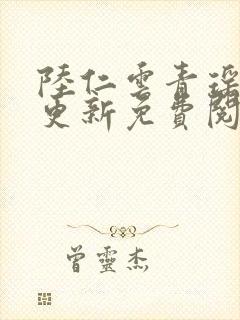 陸仁雲青瑤
更新免費閱
曾靈杰